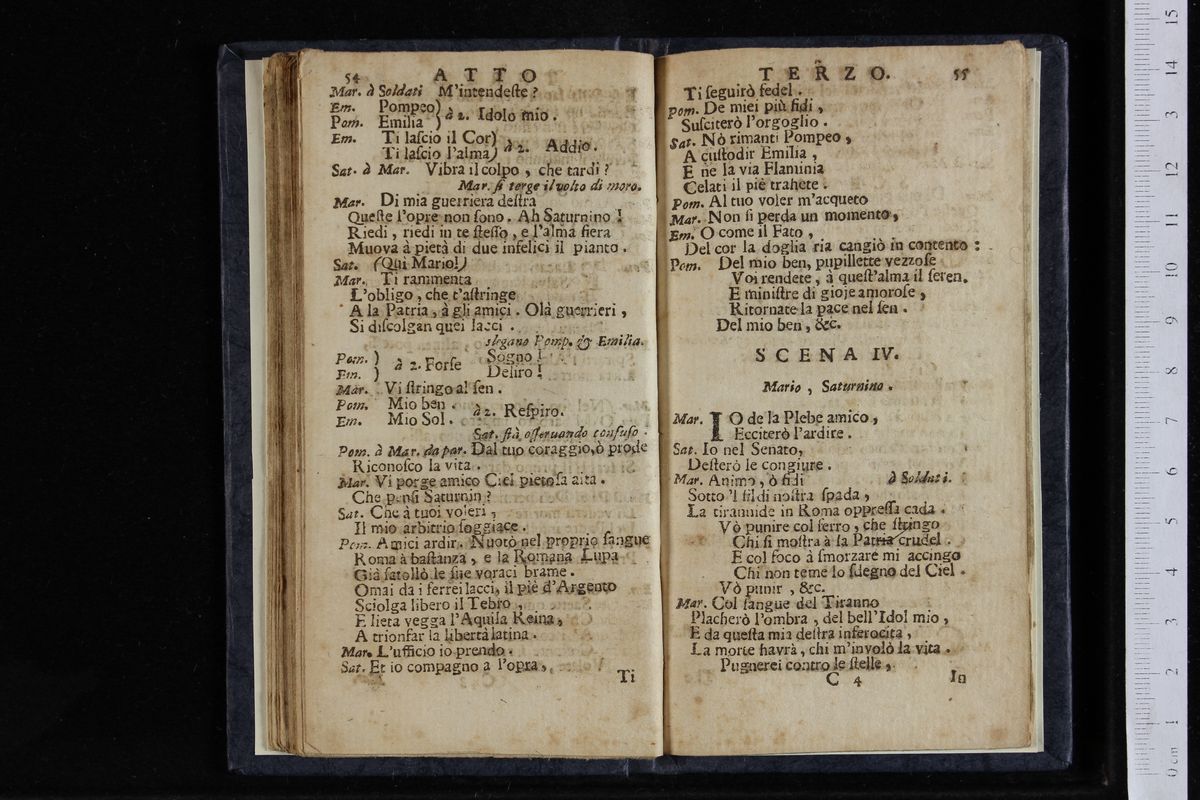 54 ATTO
Mar. à Soldati M'intendeſte ?
Em. Pompeo)
à 2. Idolo mio .
Pom. Emilia )
Em. Ti laſcio il Cor)
à 2. Addio.
Ti laſcio l'alma)
Sat. à Mar. Vibra il colpo , che tardi ?
Mar. ſi terge il volto di moro.
Mar. Di mia guerriera deſtra
Queſte l'opre non ſono . Ah Saturnino !
Riedi , riedi in te ſteſſo , e l'alma fiera
Muova à pietà di due infelici il pianto .
Sat. (Qui Mario!)
Mar. Ti rammenta
L'obligo , che t'aſtringe
A la Patria , à gli amici . Olà guerrieri ,
Si diſcolgan quei lacci .
slegano Pomp. & Emilia.
Pom. ) Sogno !
à 2. Forſe
Em. ) Deliro !
Mar. Vi ſtringo al ſen .
Pom. Mio ben .
à 2. Reſpiro.
Em. Mio Sol .
Sat. ſtà oſſeruando confuſo .
Pom. à Mar. da par. Dal tuo coraggio, ò prode
Riconoſco la vita .
Mar. Vi porge amico Ciel pietoſa aita .
Che penſi Saturnin ?
Sat. Che à tuoi voleri ,
Il mio arbitrio ſoggiace .
Pom. Amici ardir. Nuotò nel proprio ſangue
Roma à baſtanza , e la Romana Lupa
Già ſatollò le ſue voraci brame .
Omai da i ferrei lacci, il piè d'Argento
Sciolga libero il Tebro ,
E lieta vegga l'Aquila Reina ,
A trionfar la libertà latina .
Mar. L'ufficio io prendo .
Sat. Et io compagno a l'opra ,
Ti
TERZO. 55
Ti ſeguirò fedel .
Pom. De miei più fidi ,
Suſciterò l'orgoglio .
Sat. Nò rimanti Pompeo ,
A cuſtodir Emilia ,
E ne la via Flaminia
Celati il piè trahete .
Pom. Al tuo voler m'acqueto
Mar. Non ſi perda un momento ,
Em. O come il Fato ,
Del cor la doglia ria cangiò in contento :
Pom. Del mio ben, pupillette vezzoſe
Voi rendete , à queſt'alma il ſeren.
E miniſtre di gioje amoroſe ,
Ritornate la pace nel ſen .
Del mio ben , &c.
SCENA IV.
Mario , Saturnino .
Mar. IO de la Plebe amico ,
Ecciterò l'ardire .
Sat. Io nel Senato,
Deſterò le congiure .
Mar. Animo , ò fidi à Soldati.
Sotto 'l fil di noſtra ſpada ,
La tirannide in Roma oppreſſa cada .
Vò punire col ferro , che ſtringo
Chi ſi moſtra à la Patria crudel .
E col foco à ſmorzare mi accingo
Chi non teme lo ſdegno del Ciel .
Vò punir , &c.
Mar. Col ſangue del Tiranno
Placherò l'ombra , del bell'Idol mio ,
E da queſta mia deſtra inferocita ,
La morte havrà , chi m'involò la vita .
Pugnerei contro le ſtelle ,
C 4 In